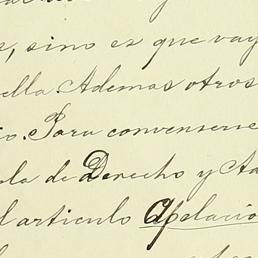 s, sino es que vay
ella. Ademas otros
io. Para convenserse
ola de Derecho y Aa
l articulo Apelacio